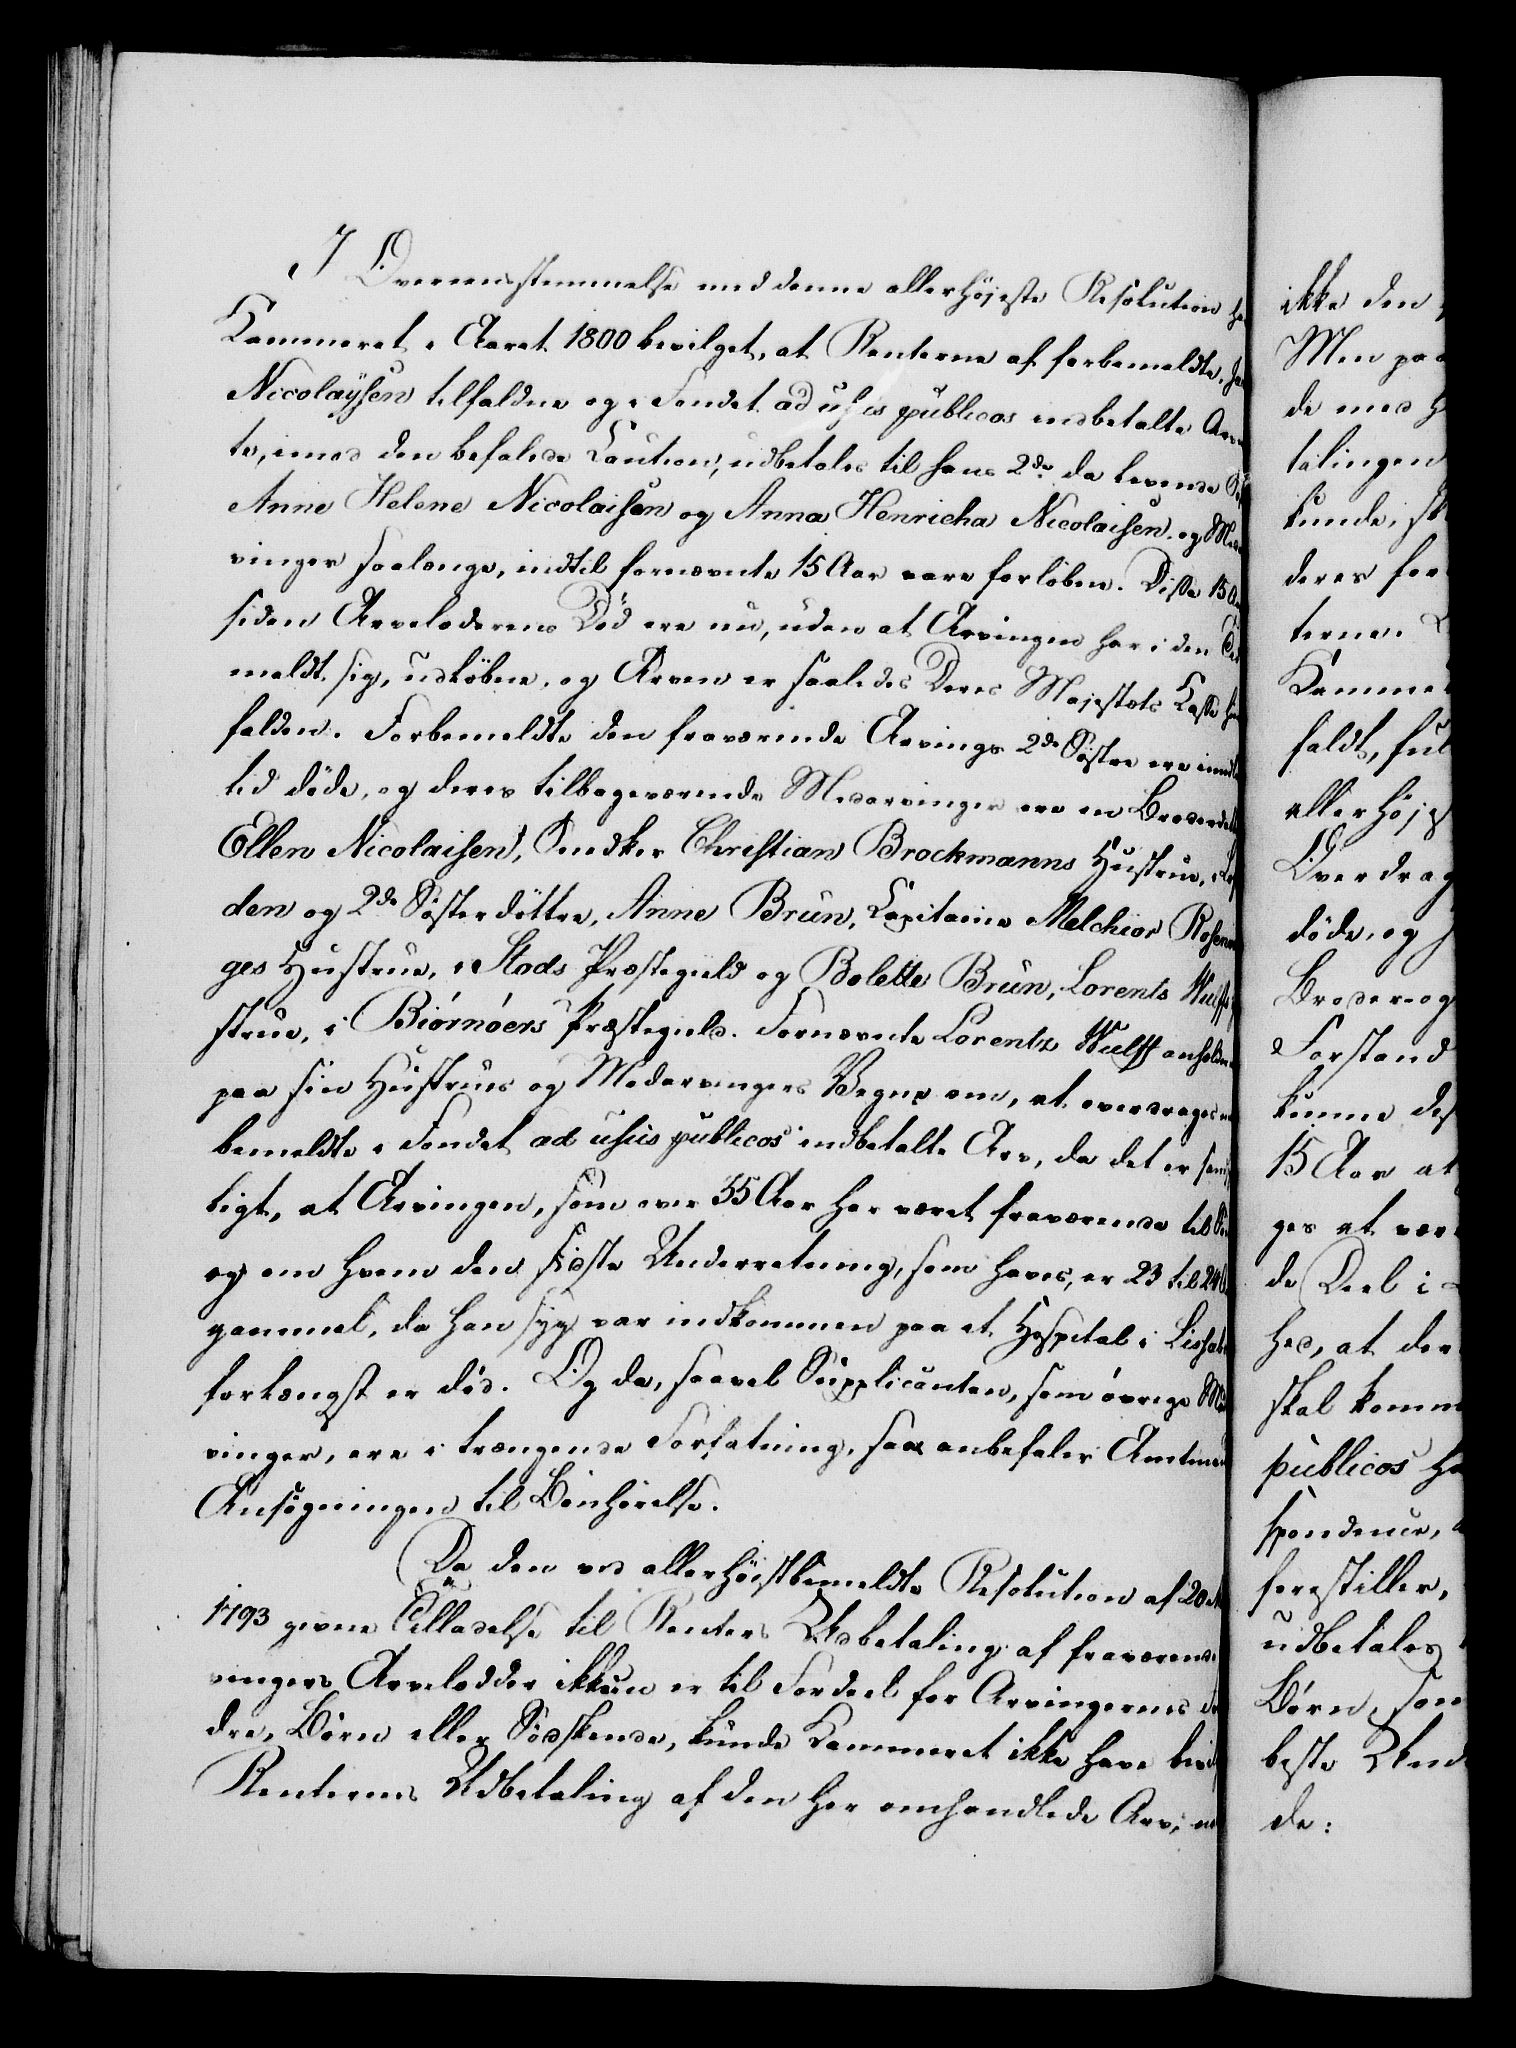 I Overeensstemmelse med denne allerhöjeste Resolution har
Kammeret i Aaret 1800 bevilget, at Renterne af forbemeldte
Nicolaÿsen tilfaldne og i Fondet ad usus publicos indbetalte
te, imod den befalede Caution, udbetales til hans 2de da levende
Anne Helene Nicolaisen og Anna Henricha Nicolaisen, og Med
vinger saalænge, indtil fornævnte 15 Aar vare forløbne. Disse 15
siden Arveladerens Död ere nu, uden at Arvingen har i den
meldt sig, udløbne, og Arven er saaledes Deres Majestæts Kasse
falden. Forbemeldte den fraværende Arvings 2de Söstre ere
tid döde, og deres tilbageværende Medarvinger ere en
Ellen Nicolaisen, Snedker Christian Brockmanns Hustrue,
den og 2de Søsterdöttre, Anne Brun, Capitaine Melchior
ges Hustrue, i Stods Præstegield og Bolette Brun, Lorents
strue, i Biørnøers Præstegield. Fornævnte Lorentz Wulff
paa sin Hustrues og Medarvingers Vegne om, at overdrages
bemeldte i Fondet ad usus publicos indbetalte Arv, da det er
ligt, at Arvingen, som over 35 Aar har været fraværende til
og om hvem den sidste Underretning, som haves, er 23 til 24
gammel, da han syg var indkommen paa et Hospital i
forlængst er död. Og da, saavel Supplicanten, som øvrige
vinger, ere i trængende Forfatning, saa anbefaler
Ansøgningen til Bönhørelse.
Da den ved allerhöistbemeldte Resolution af 20
1793 givne Tilladelse til Renters Udbetaling af
vingers Arvelodder ikkun er til Fordeel for Arvingernes
dre, Børn eller Södskende, kunde Kammeret ikke have
Renternes Udbetaling af den her omhandlede Arv,
ikke den
Men paa
de med
talingen
kunde,
deres for
terne.
Kamme
faldt,
allerhöj
Overdrag
döde, og
Broder og
Forstand
kunne
15 Aar at
ges at vær
de Deel i
hed, at der
skal komm
publicos
spondence,
forestiller,
udbetales
Børn, som
beste
de: